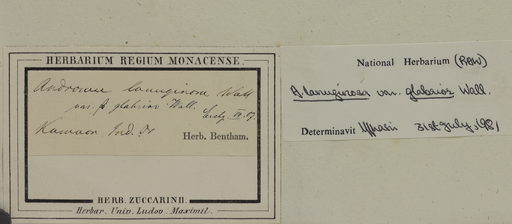 HERBARIUM REGIUM MONACENSE.
Androsace lanuginosa Wall
var. β glabrior Wall.
Kamaon Ind. Or
Herb. Bentham.
HERB. ZUCCARINII.
Herbar. Univ. Ludov. Maximil.
National Herbarium (RAW)
A. lanuginosa var. glabrior Wall.
Determinavit 31st July, 1981